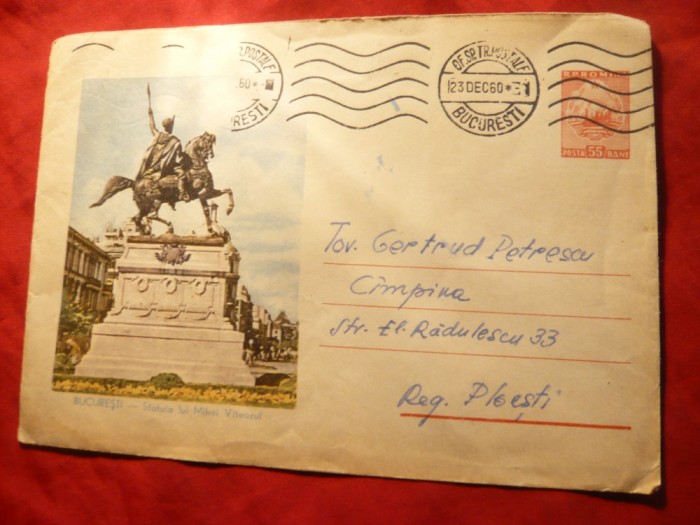 R. POSTALE
60 *
RESTI
OF. SP. TR. POSTALE
23 DEC 60 *
BUCUREȘTI
R.P. ROMINĂ
POSTA 55 BANI
Tov. Gertrud Petrescu
Cîmpina
Str. El. Rădulescu 33
Reg. Ploești
BUCUREȘTI — Statuia lui Mihai Viteazul